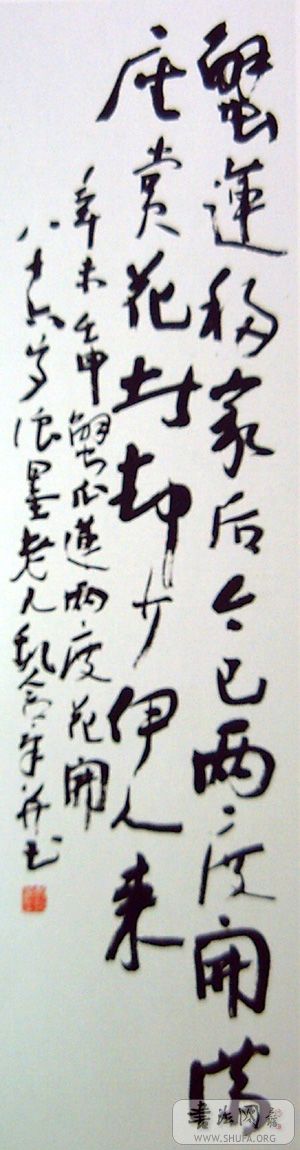 蟹莲移家后今已两度开满
座赏花时却少伊人来
辛未壬申蟹爪莲两度花开
八十六岁浪墨老人乱命笔并书
書法网
WWW.SHUFA.ORG